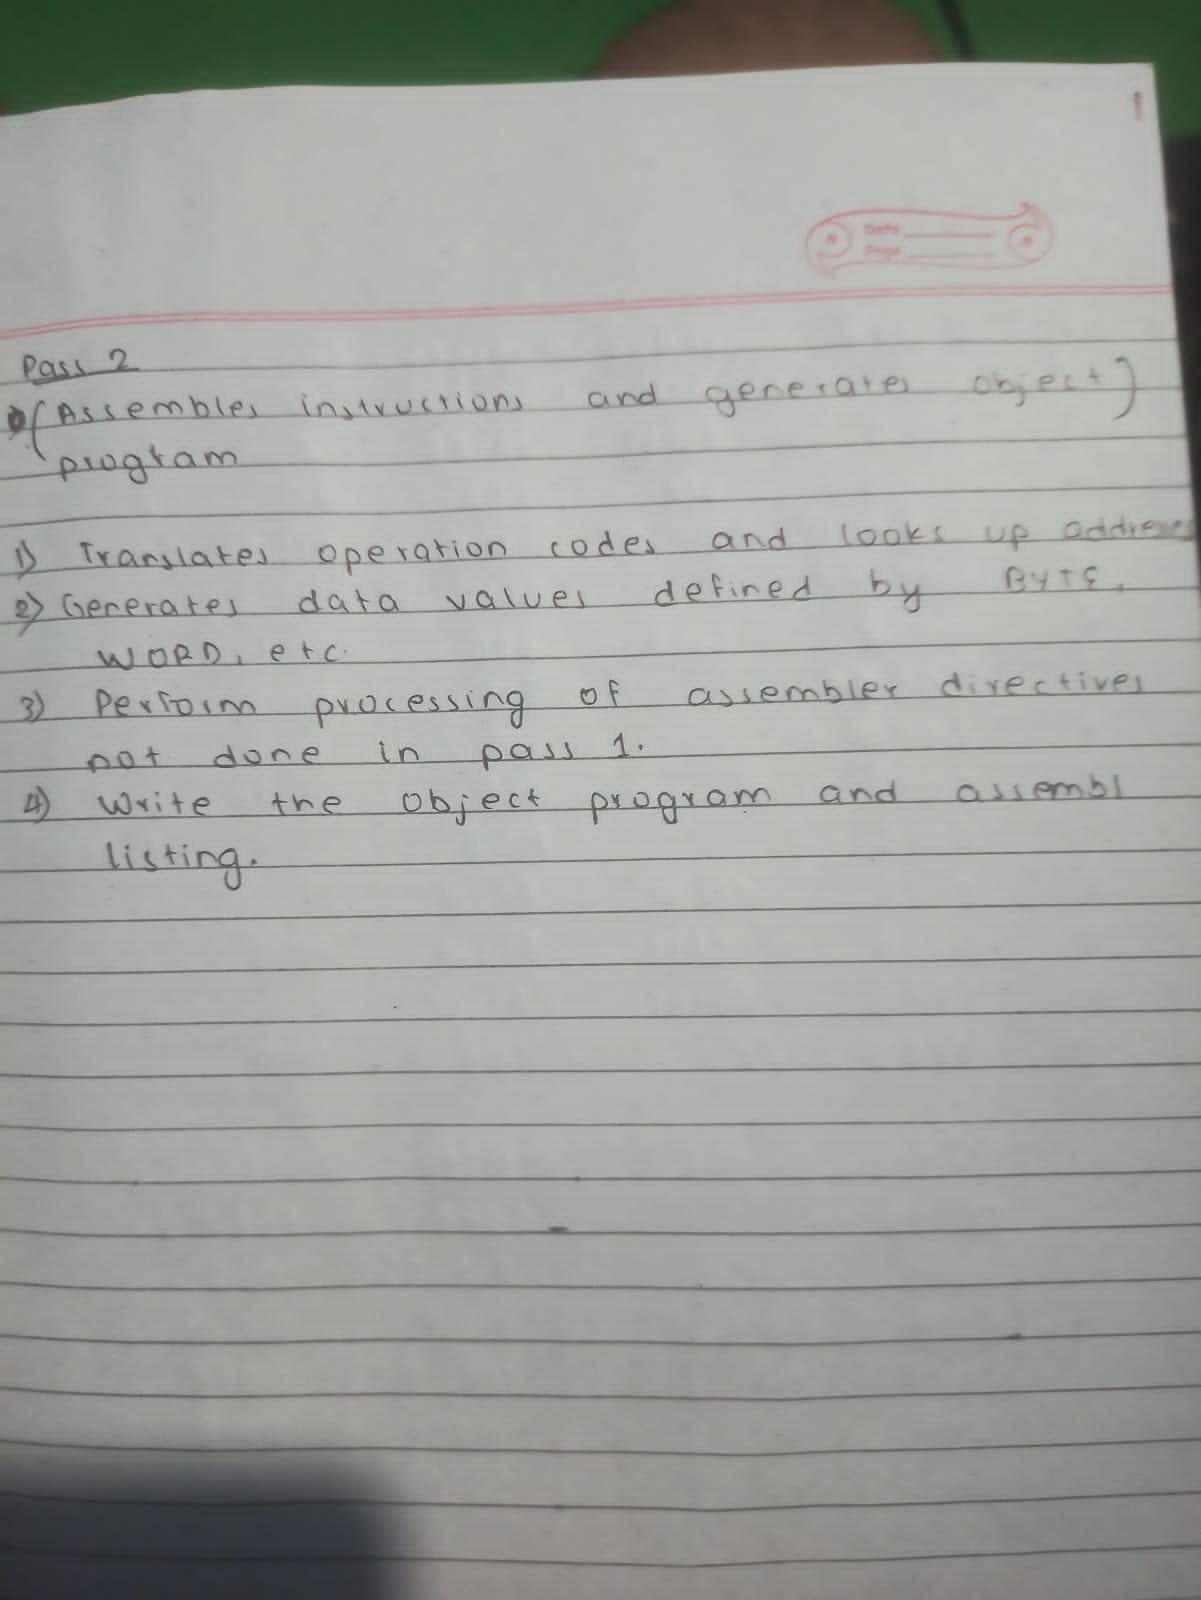 Date
Page
Pass 2
(Assembles instructions and generates object)
program
1) Translates operation codes and looks up address
2) Generates data values defined by BYTE,
WORD, etc.
3) Perform processing of assembler directives
not done in pass 1.
4) Write the object program and assembl
listing.